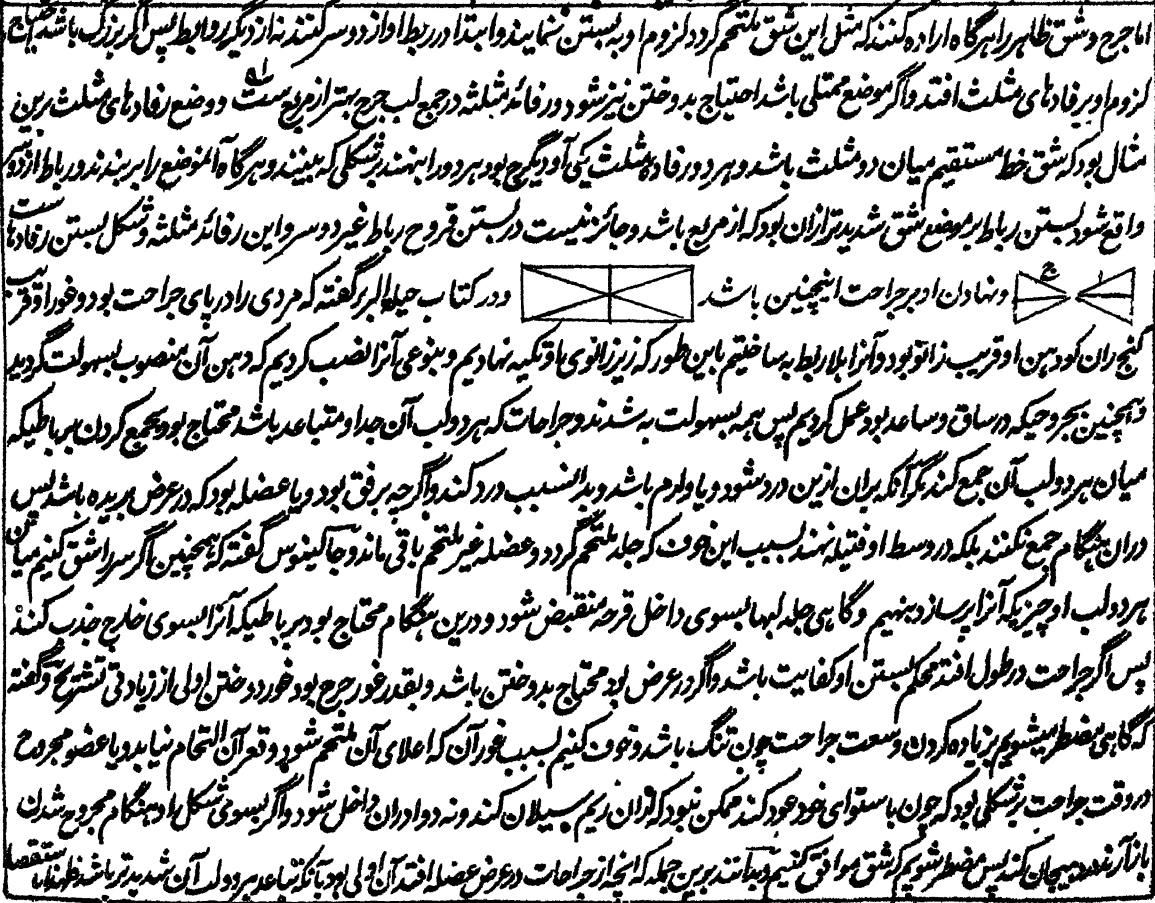 اما جرح وشق ظاہر را ہرگاه اراده کنند که مثل این شق ملتحم گردد لزوم او به بستن نمایند وابتدا در ربط او از دو سر کنند نه از دیگر روابط پس اگر بزرگ باشد احتیاج
لزوم او برفادہای مثلث افتد واگر موضع ممتلی باشد احتیاج بدوختن نیز شود ورفائد مثلثه در جمع لب جرح بہتر از مربع ست ووضع رفادہای مثلث برین
مثال بود که شق خط مستقیم میان دو مثلث باشد وہر دو رفادہ مثلث یکی آ ودیگر ج بود ہر دو را بنہند بر شکلی که بینند وہرگاه آنموضع را بر بندند ورباط از دو سر
واقع شود بستن رباط بر موضع شق شدیدتر ازان بود که از مربع باشد وجائز نیست در بستن قروح رباط غیر دو سر واین رفائد مثلثه وشکل بستن رفادہا ست
ونہادن او بر جراحت اینچنین باشد ودر کتاب حیلة البرء گفته که مردی را در پای جراحت بود وغور او قریب
کنج ران بود دہن او قریب زانو بود وآنرا بلا ربط به ساختیم باین طور که زیر زانوی او تکیه نہادیم وبنوعی آنرا نصب کردیم که دہن آن منصوب بسہولت گردید
وہمچنین بجروحیکه در ساق وساعد بود عمل کردیم پس ہمه بسہولت به شدند وجراحات که ہر دو لب آن جدا ومتباعد باشد محتاج بود بجمع کردن برباطیکه
میان ہر دو لب آن جمع کند مگر آنکه بران ازین درد شود ویا ورم باشد وبدانسبب درد کند واگرچه برفق بود ویا عضله بود که در عرض بریده باشد پس
دران ہنگام جمع نکنند بلکه در وسط او فتیله نہند بسبب این خوف که جلد ملتحم گردد وعضله غیر ملتحم باقی ماند وجالینوس گفته که ہمچنین اگر سر را شق کنیم میان
ہر دو لب او چیزیکه آنرا پر سازد بنہیم وگاہی جلد لبہا بسوی داخل قرحه منقبض شود ودرین ہنگام محتاج بود برباطیکه آنرا بسوی خارج جذب کند
پس اگر جراحت در طول افتد محکم بستن او کفایت باشد واگر در عرض بود محتاج بدوختن باشد وبقدر غور جرح بود غور دوختن اولی از زیادتی تشریح وگفته
که گاہی مضطر میشویم بزیاده کردن وسعت جراحت چون تنگ باشد وخوف کنیم بسبب غور آن که اعلای آن ملتحم شود وقعر آن التحام نیابد ویا عضو مجروح
در وقت جراحت بر شکلی بود که چون باستوای خود عود کند ممکن نبود که ازان ریم سیلان کند ونه دوا دران داخل شود واگر بسوی شکل او ہنگام مجروح شدن
باز آرند درد ہیجان کند پس مضطر شویم که شق موافق کنیم وبدانند برین جمله که انچه از جراحات در عرض عضله افتد آن اولی بود بآنکه تباعد ہر دو لب آن شدیدتر باشد